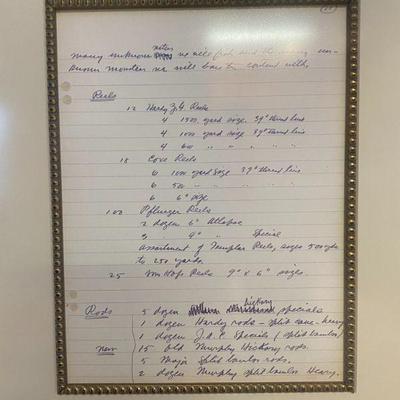 waters
many unknown we will fish and the many un-
known monsters we will have to contend with.
Reels
12 Hardy Z.G. Reels
4 1500 yard size 39 thread line
4 1000 yard size 39 thread line
4 600 " " " "
18 Coxe Reels
6 1000 yard size 39 thread line
6 500 " " "
6 6" size
100 Pflueger Reels
2 dozen 6" Altapac
3 9" Special
assortment of Templar Reels, sizes 500 yds
to 250 yards.
25 Vom Hofe Reels 9" & 6" sizes
hickory
Rods 5 dozen specials
1 dozen Hardy rods - split cane - heavy
1 dozen J.A.C. Specials (split bamboo)
new 15 old Murphy Hickory rods.
5 Major split bamboo rods.
2 dozen Murphy split bamboo Heavy.